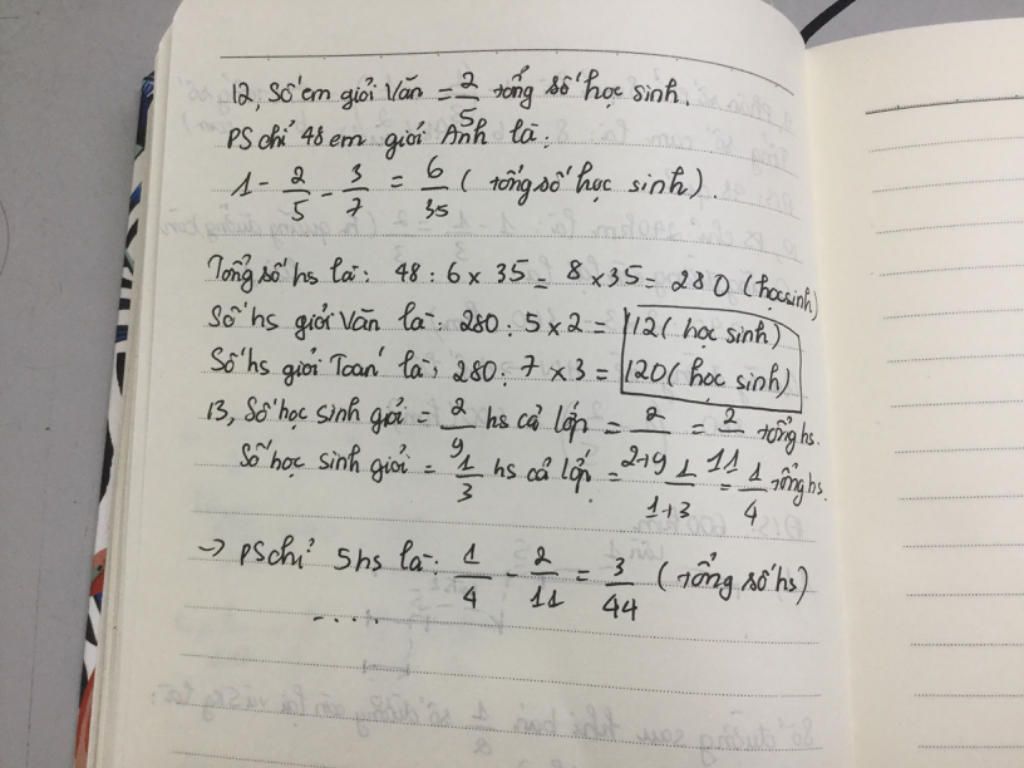 12, Số em giỏi Văn = 2/5 tổng số học sinh.
PS chỉ 48 em giỏi Anh là:
1 - 2/5 - 3/7 = 6/35 ( tổng số học sinh ).
Tổng số hs là: 48 : 6 x 35 = 8 x 35 = 280 ( học sinh )
Số hs giỏi Văn là: 280 : 5 x 2 = 112 ( học sinh )
Số hs giỏi Toán là: 280 : 7 x 3 = 120 ( học sinh )
13, Số học sinh giỏi = 2/9 hs cả lớp = 2/2+9 = 2/11 tổng hs.
Số học sinh giỏi = 1/3 hs cả lớp = 1/1+3 = 1/4 tổng hs.
→ PS chỉ 5 hs là: 1/4 - 2/11 = 3/44 ( tổng số hs )
....